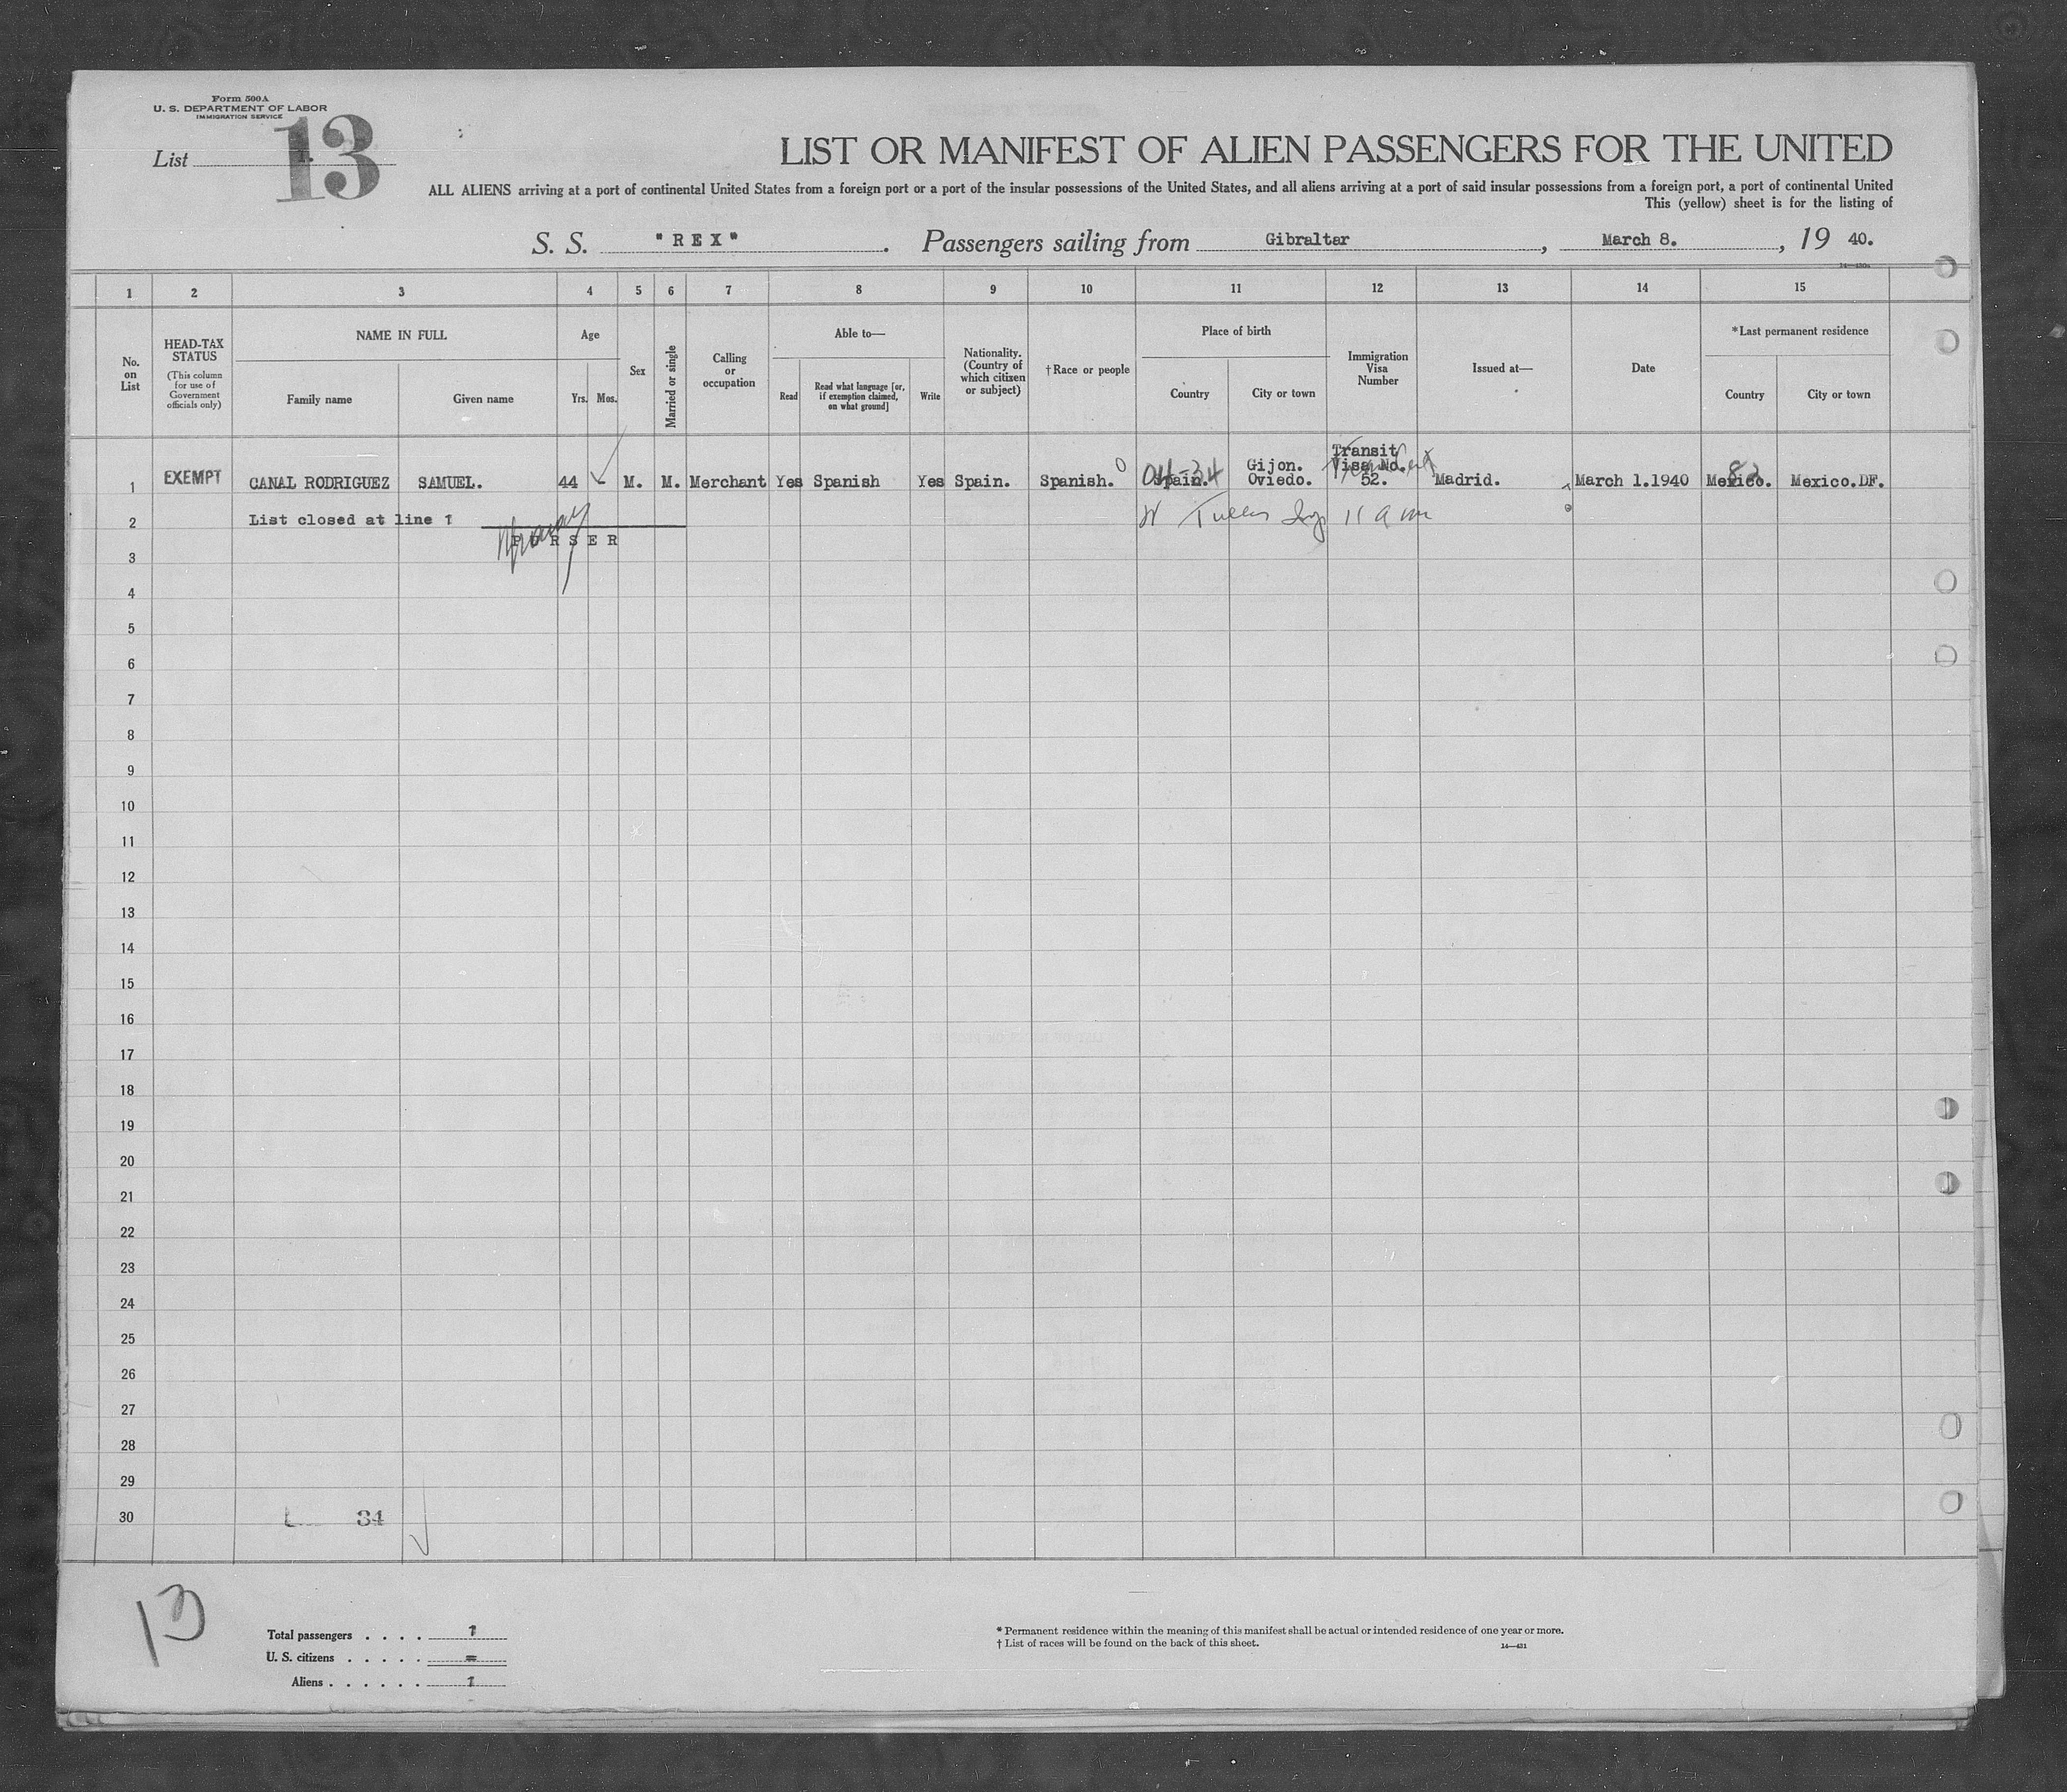 Form 500A
U. S. DEPARTMENT OF LABOR
IMMIGRATION SERVICE
List 1.
13
LIST OR MANIFEST OF ALIEN PASSENGERS FOR THE UNITED
ALL ALIENS arriving at a port of continental United States from a foreign port or a port of the insular possessions of the United States, and all aliens arriving at a port of said insular possessions from a foreign port, a port of continental United
This (yellow) sheet is for the listing of
S. S. "REX". Passengers sailing from Gibraltar, March 8., 19 40.
1 2 3 4 5 6 7 8 9 10 11 12 13 14 15
No. on List
HEAD-TAX STATUS
(This column for use of Government officials only)
NAME IN FULL
Family name
Given name
Age
Yrs. Mos.
Sex
Married or single
Calling or occupation
Able to—
Read
Read what language [or, if exemption claimed, on what ground]
Write
Nationality. (Country of which citizen or subject)
†Race or people
Place of birth
Country
City or town
Immigration Visa Number
Issued at—
Date
*Last permanent residence
Country
City or town
1 EXEMPT CANAL RODRIGUEZ SAMUEL. 44 M. M. Merchant Yes Spanish Yes Spain. Spanish. Spain. Gijon. Oviedo. Transit Visa No. 52. Madrid. March 1.1940 Mexico. Mexico.DF.
2 List closed at line 1
PURSER
3
4
5
6
7
8
9
10
11
12
13
14
15
16
17
18
19
20
21
22
23
24
25
26
27
28
29
30 34
13
Total passengers . . . . 1
U. S. citizens . . . . . =
Aliens . . . . . . 1
* Permanent residence within the meaning of this manifest shall be actual or intended residence of one year or more.
† List of races will be found on the back of this sheet.
14—421